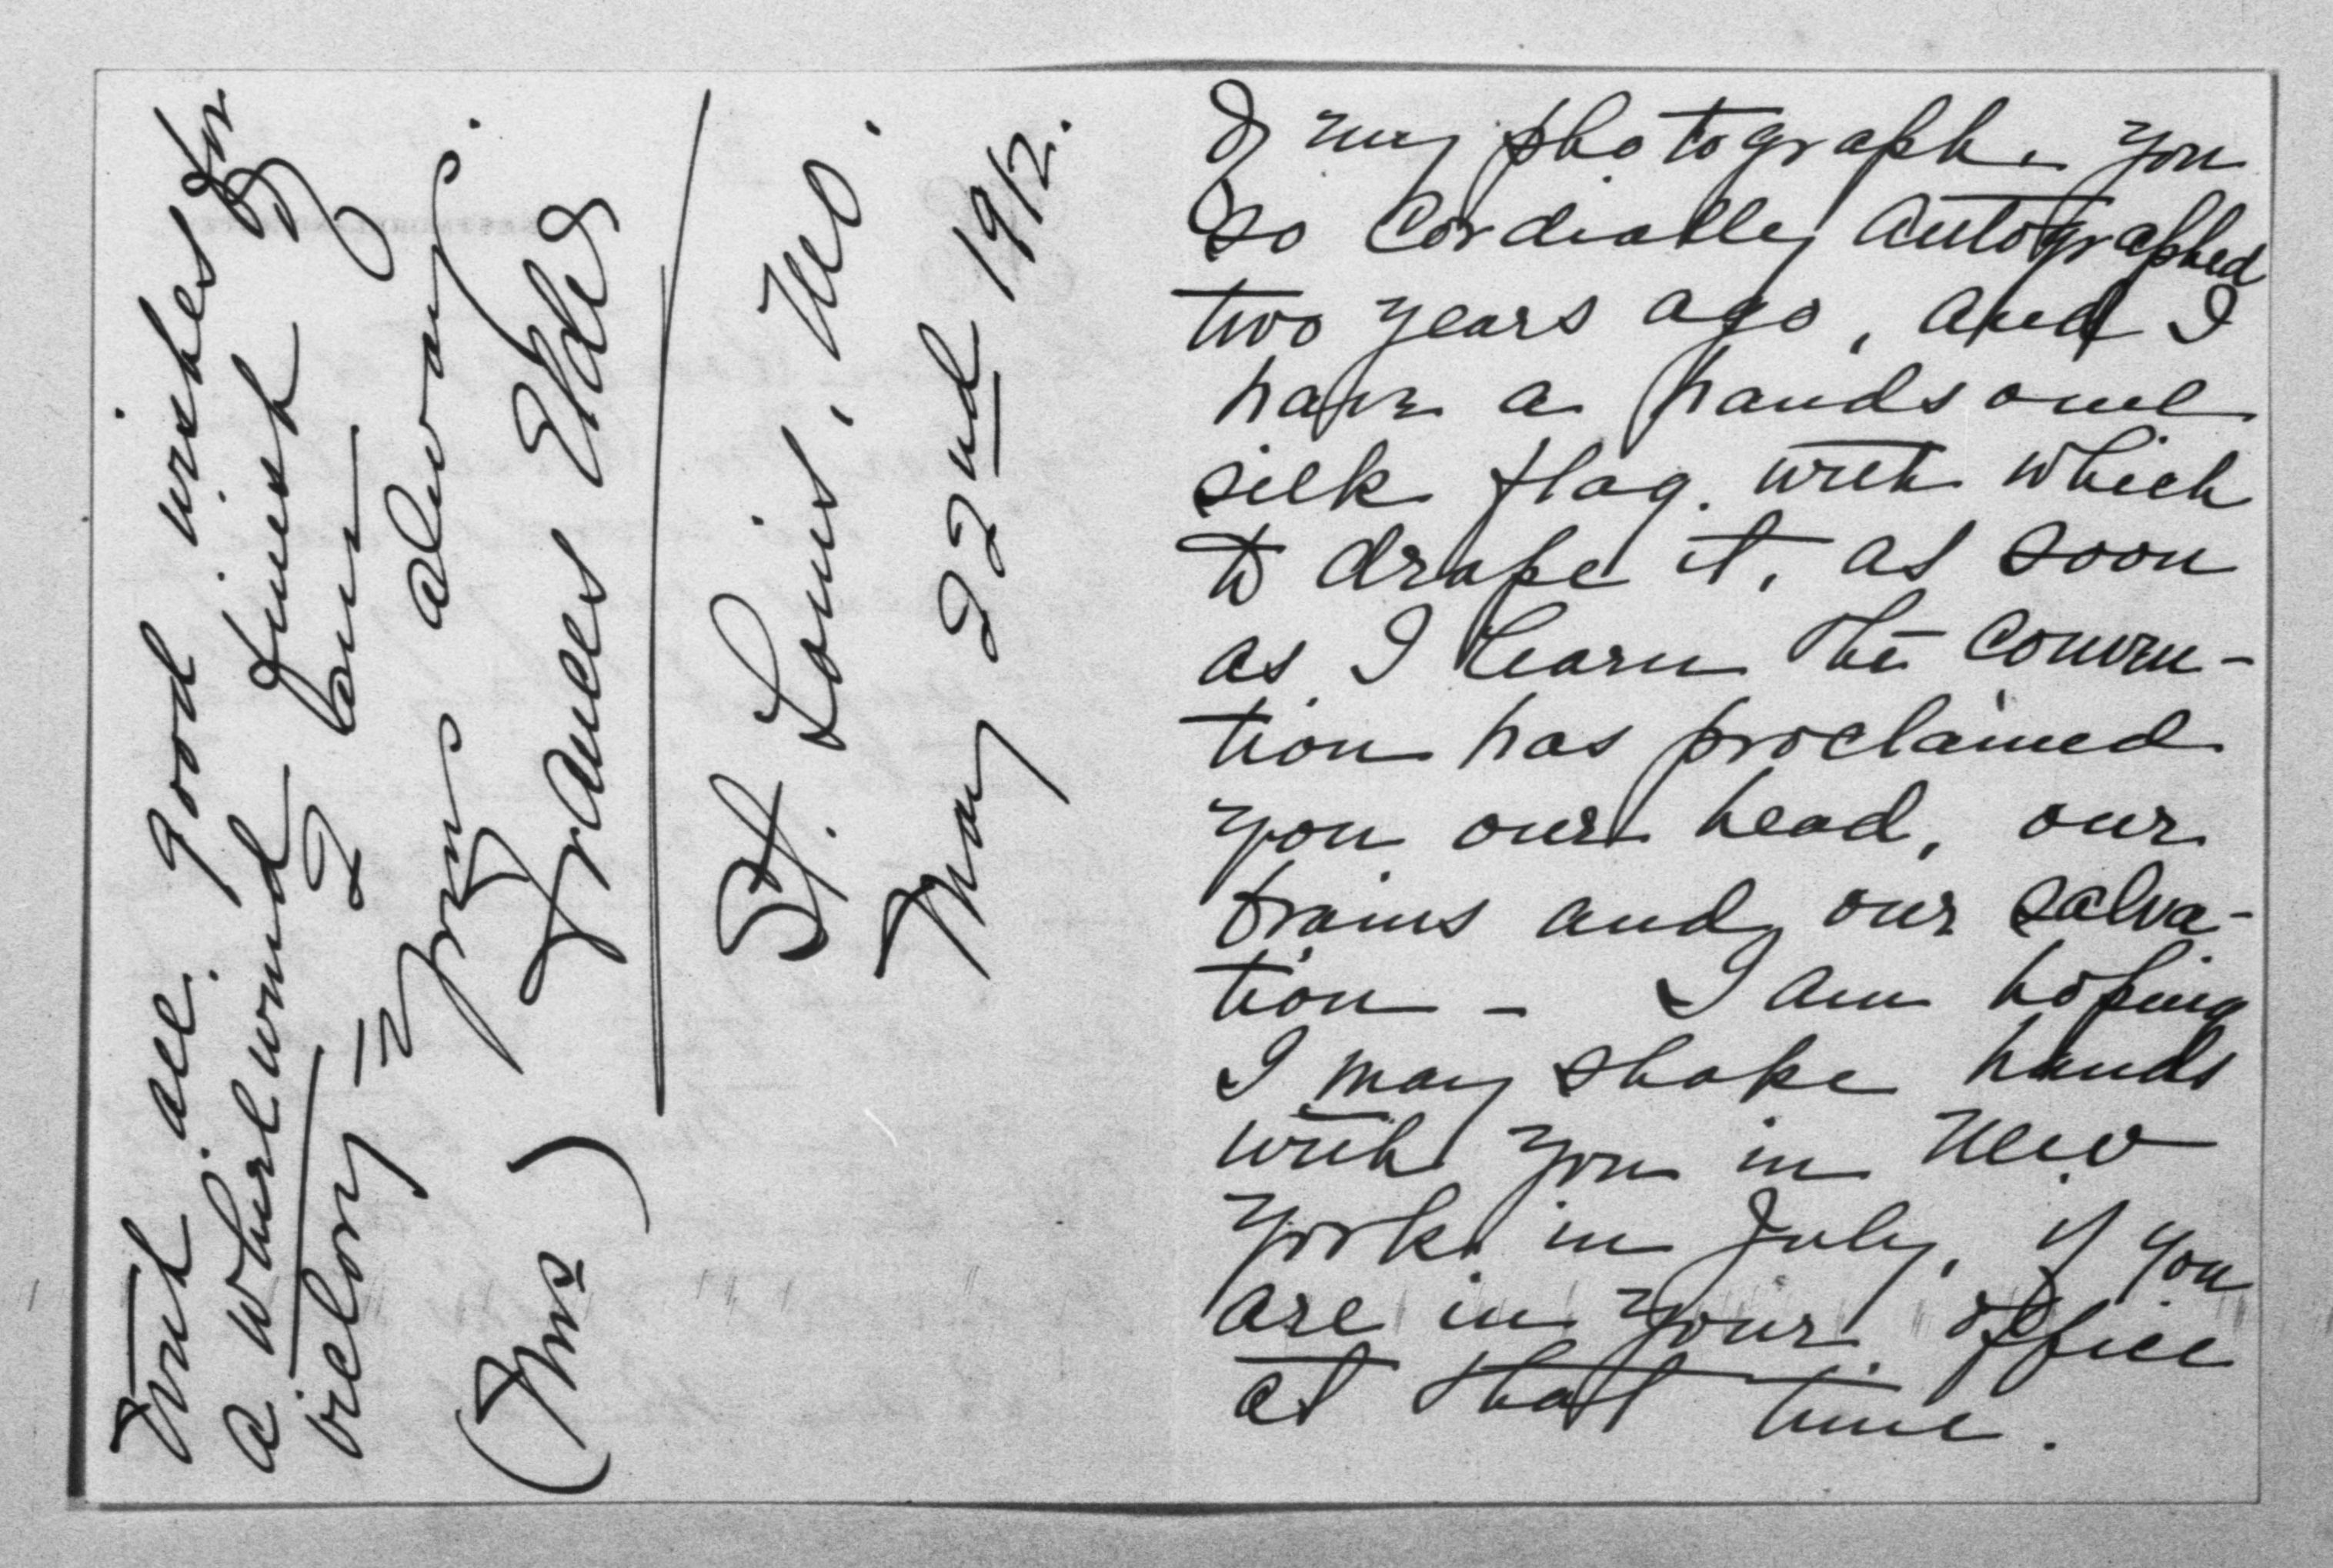 of my photograph you
so cordially autographed
two years ago, and I
have a handsome
silk flag with which
to drape it, as soon
as I learn the conven-
tion has proclaimed
you our head, our
brains and our salva-
tion - I am hoping
I may shake hands
with you in New
York in July, if you
are in your office
at that time.
With all good wishes for
a whirlwind finish
victory - I am
Yours always.
(Mrs) Frances Elder
St. Louis, Mo.
May 22nd 1912.